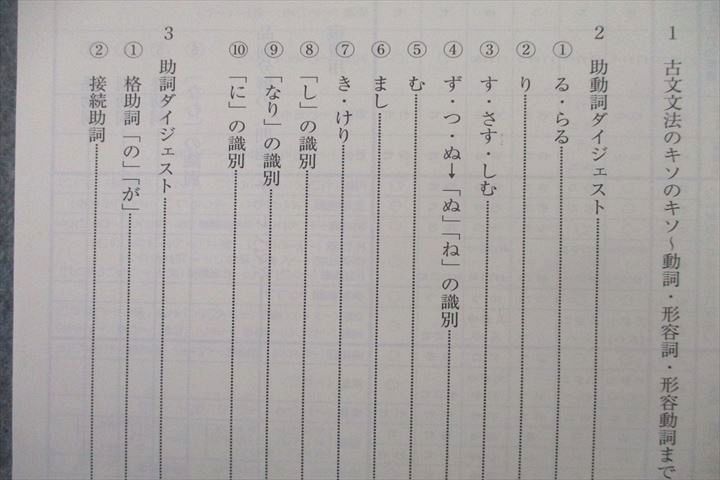 1 古文文法のキソのキソ~動詞・形容詞・形容動詞まで
2 助動詞ダイジェスト
① る・らる
② り
③ す・さす・しむ
④ ず・つ・ぬ→「ぬ」「ね」の識別
⑤ む
⑥ まし
⑦ き・けり
⑧ 「し」の識別
⑨ 「なり」の識別
⑩ 「に」の識別
3 助詞ダイジェスト
① 格助詞「の」「が」
② 接続助詞